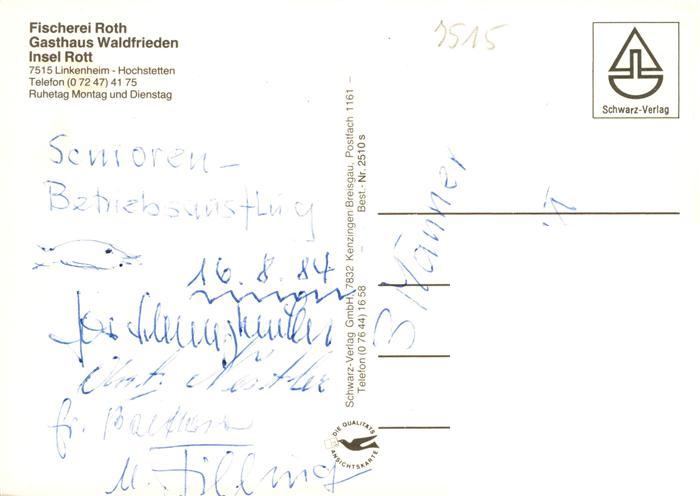 Fischerei Roth
Gasthaus Waldfrieden
Insel Rott
7515 Linkenheim - Hochstetten
Telefon (0 72 47) 41 75
Ruhetag Montag und Dienstag
7515
Schwarz-Verlag
Senioren-
Betriebsausflug
16.8.84
M. Filling
Schwarz-Verlag GmbH, 7832 Kenzingen Breisgau, Postfach 1161 –
Telefon (0 76 44) 16 58 – Best.-Nr. 2510 s
DIE QUALITÄTS
ANSICHTSKARTE
3 Männer